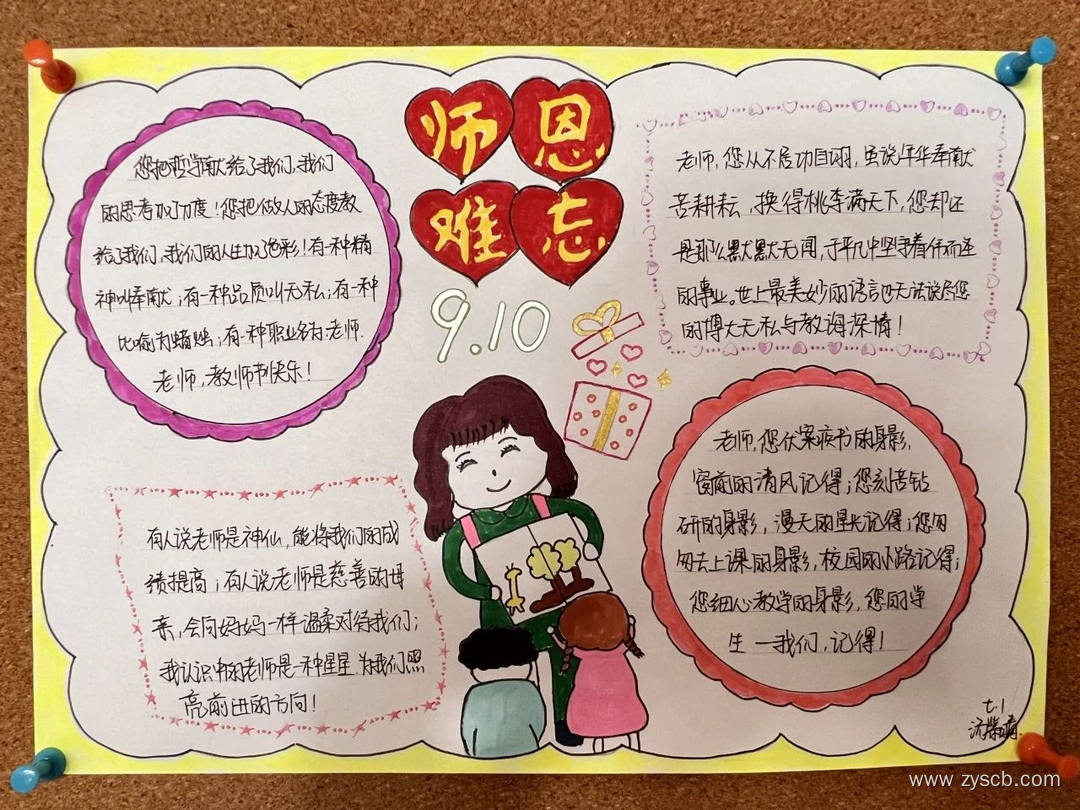 师恩
难忘
9.10
您把哲学献给了我们,我们
的思考加了力度!您把做人的态度教
给了我们,我们的人生加了色彩!有一种精
神叫奉献;有一种品质叫无私;有一种
比喻为蜡烛;有一种职业名为老师.
老师,教师节快乐!
老师,您从不居功自诩,虽说年华奉献
苦耕耘,换得桃李满天下,您却还
是那么默默无闻,于平凡中坚守着伟
的事业。世上最美妙的语言也无法说尽您
的博大无私与教诲深情!
有人说老师是神仙,能将我们的成
绩提高;有人说老师是慈善的母
亲,会同妈妈一样温柔对待我们;
我认识中的老师是一种星星.为我们照
亮前进的方向!
老师,您伏案疾书的身影,
窗前的清风记得;您刻苦钻
研的身影,漫天的星光记得;您匆
匆去上课的身影,校园的小路记得;
您细心教学的身影,您的学
生一我们,记得!
七.1
www.zyscb.com